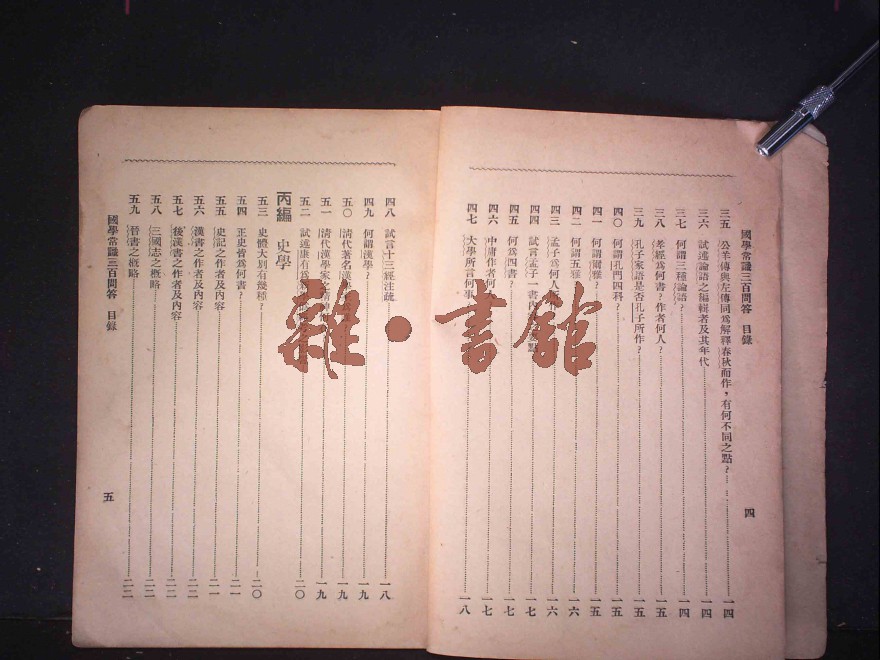 國學常識三百問答 目錄
四
三五 公羊傳與左傳同爲解釋春秋而作，有何不同之點？ 一四
三六 試述論語之編輯者及其年代 一四
三七 何謂三種論語？ 一四
三八 孝經爲何書？作者何人？ 一五
三九 孔子家語是否孔子所作？ 一五
四〇 何謂孔門四科？ 一五
四一 何謂爾雅？ 一五
四二 何謂五雅 一六
四三 孟子爲何人 一六
四四 試言孟子一書內 點 一七
四五 何爲四書？ 一七
四六 中庸作者何 一七
四七 大學所言何事 一八
四八 試言十三經注疏 一八
四九 何謂漢學？ 一九
五〇 清代著名漢 一九
五一 清代漢學家之 一九
五二 試述康有爲 二〇
丙編 史學
五三 史體大別有幾種？ 二〇
五四 正史皆爲何書？ 二一
五五 史記之作者及內容 二一
五六 漢書之作者及內容 二二
五七 後漢書之作者及內容 二二
五八 三國志之概略 二二
五九 晉書之概略 二二
國學常識三百問答 目錄
五
雜·書館